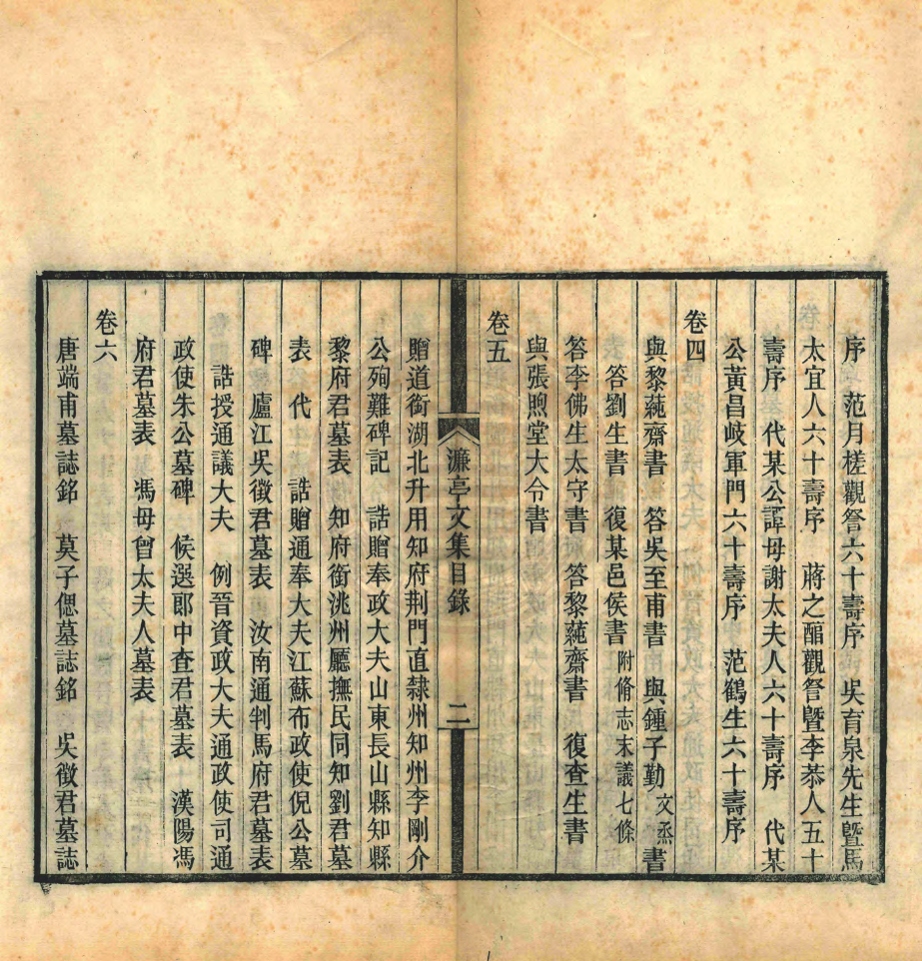 序　范月槎觀詧六十壽序　吳育泉先生曁馬
太宜人六十壽序　蔣之醕觀詧曁李恭人五十
壽序　代某公譚母謝太夫人六十壽序　代某
公黃昌岐軍門六十壽序　范鶴生六十壽序
卷四
與黎蒓齋書　答吳至甫書　與鍾子勤文烝書
答劉生書　復某邑侯書附脩志末議七條
答李佛生太守書　答黎蒓齋書　復查生書
與張煦堂大令書
卷五
濂亭文集目錄　二
贈道銜湖北升用知府荆門直隸州知州李剛介
公殉難碑記　誥贈奉政大夫山東長山縣知縣
黎府君墓表　知府銜洮州廳撫民同知劉君墓
表　代　誥贈通奉大夫江蘇布政使倪公墓
碑　廬江吳徵君墓表　汝南通判馬府君墓表
誥授通議大夫　例晉資政大夫通政使司通
政使朱公墓碑　候選郎中查君墓表　漢陽馮
府君墓表　馮母曾太夫人墓表
卷六
唐端甫墓誌銘　莫子偲墓誌銘　吳徵君墓誌